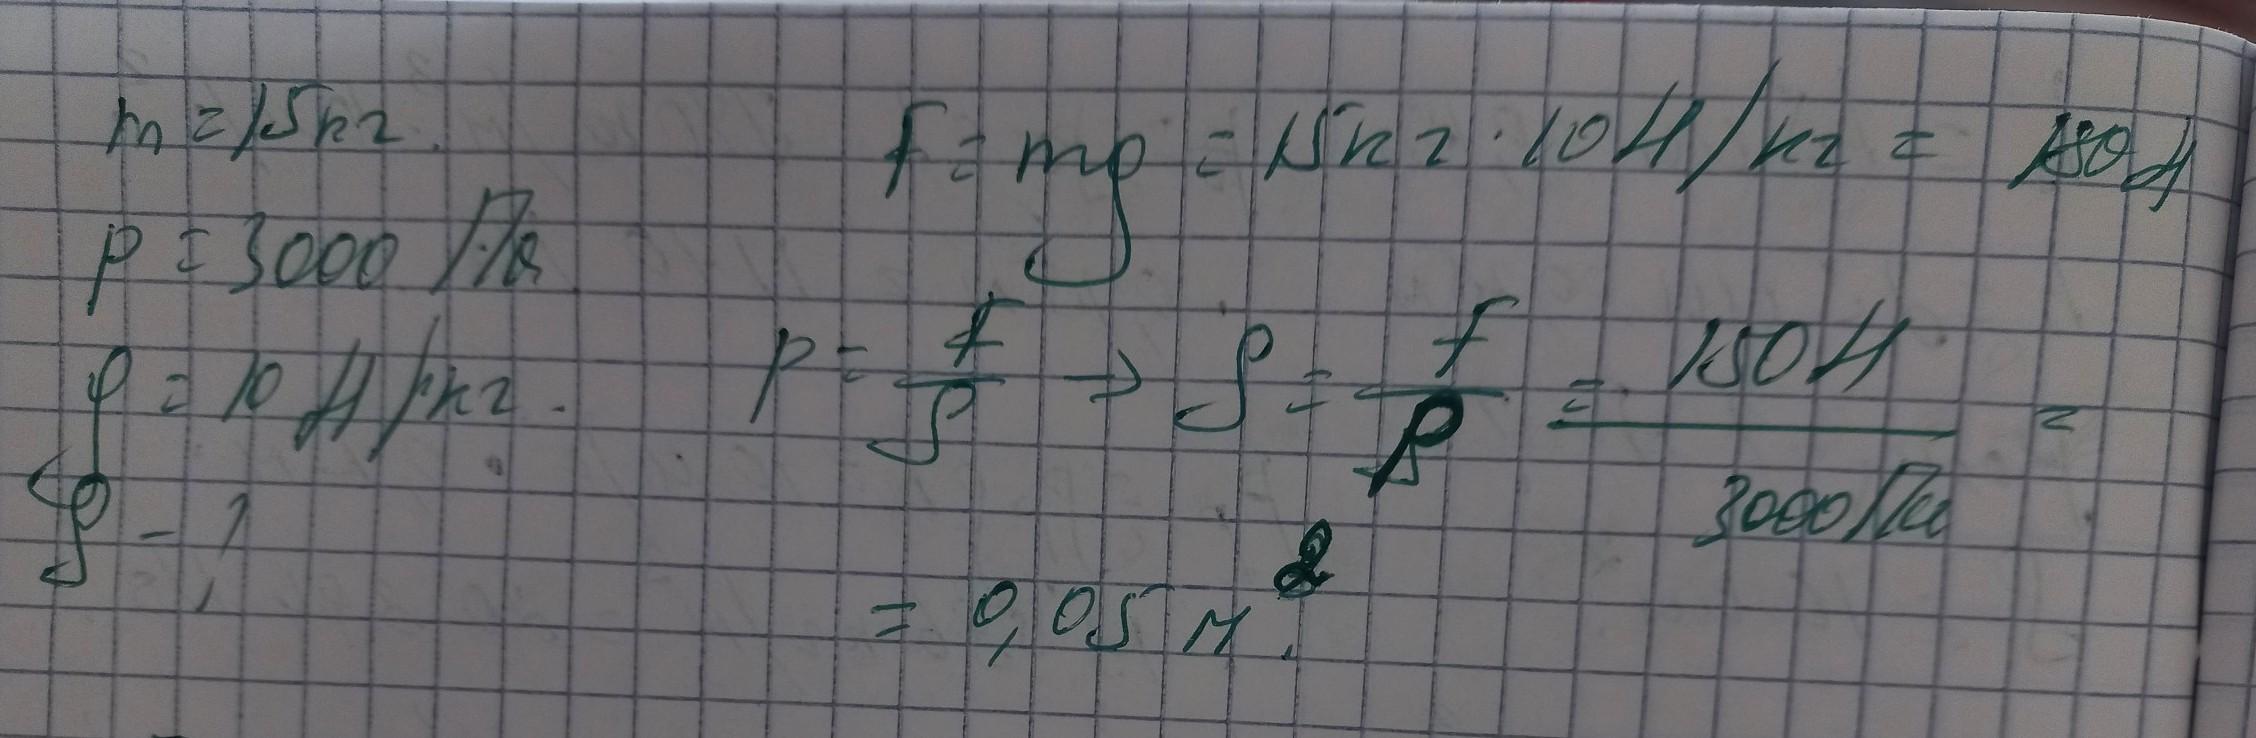 m = 15 кг.
p = 3000 Па
g = 10 Н/кг.
S - ?
F = mg = 15 кг · 10 Н/кг = 150 Н
p = F/S → S = F/p = 150 Н / 3000 Па =
= 0,05 м².